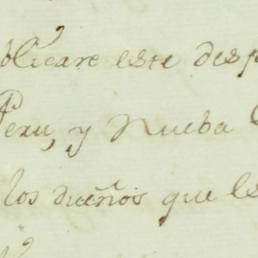 blicare este des
Peru, y Nueba
los dueños que les